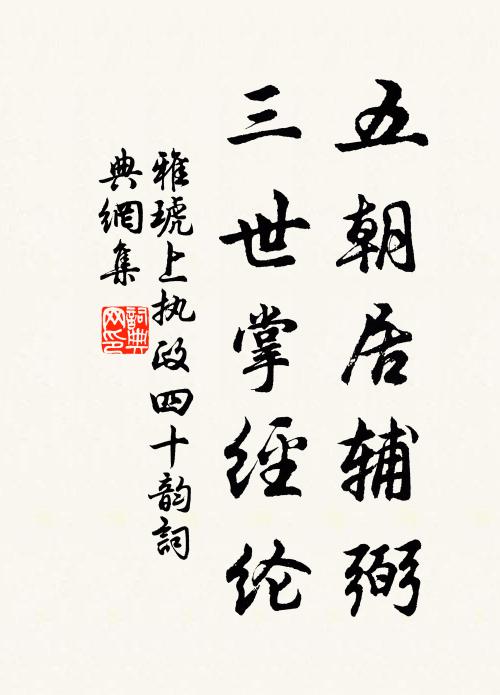 五朝居辅弼
三世掌經纶
雅琥上执政四十韵詞
典網集
詞典网印